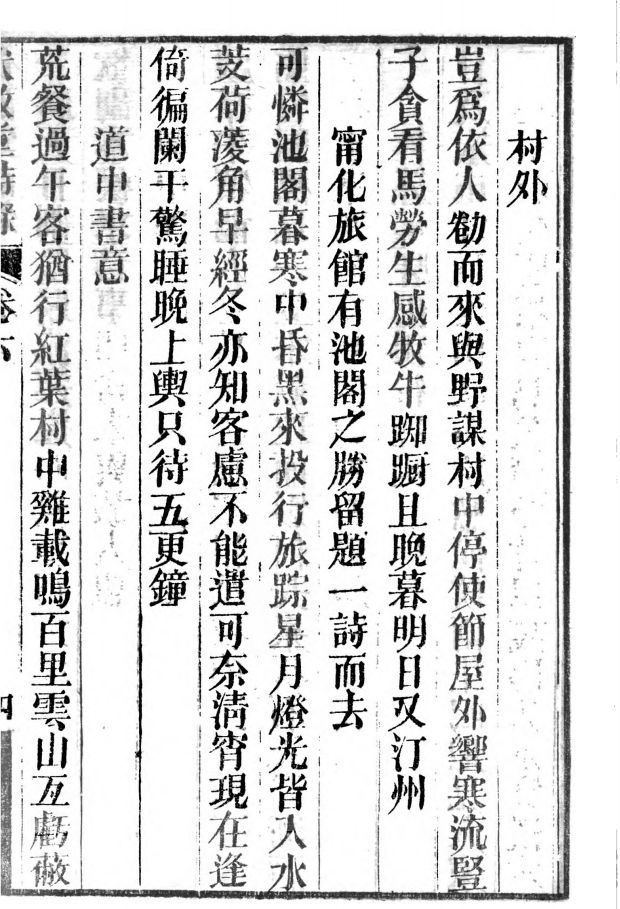 村外
豈爲依人勌而來與野謀村中停使節屋外響寒流豎
子貪看馬勞生感牧牛踟躕且晚暮明日又汀州
甯化旅館有池閣之勝留題一詩而去
可憐池閣暮寒中昏黑來投行旅踪星月燈光皆入水
芰荷蔆角早經冬亦知客慮不能遣可奈清宵現在逢
倚徧闌干驚睡晚上輿只待五更鐘
道中書意
荒餐過午客猶行紅葉村中雞載鳴百里雲山互虧蔽
詩錄 卷六 四